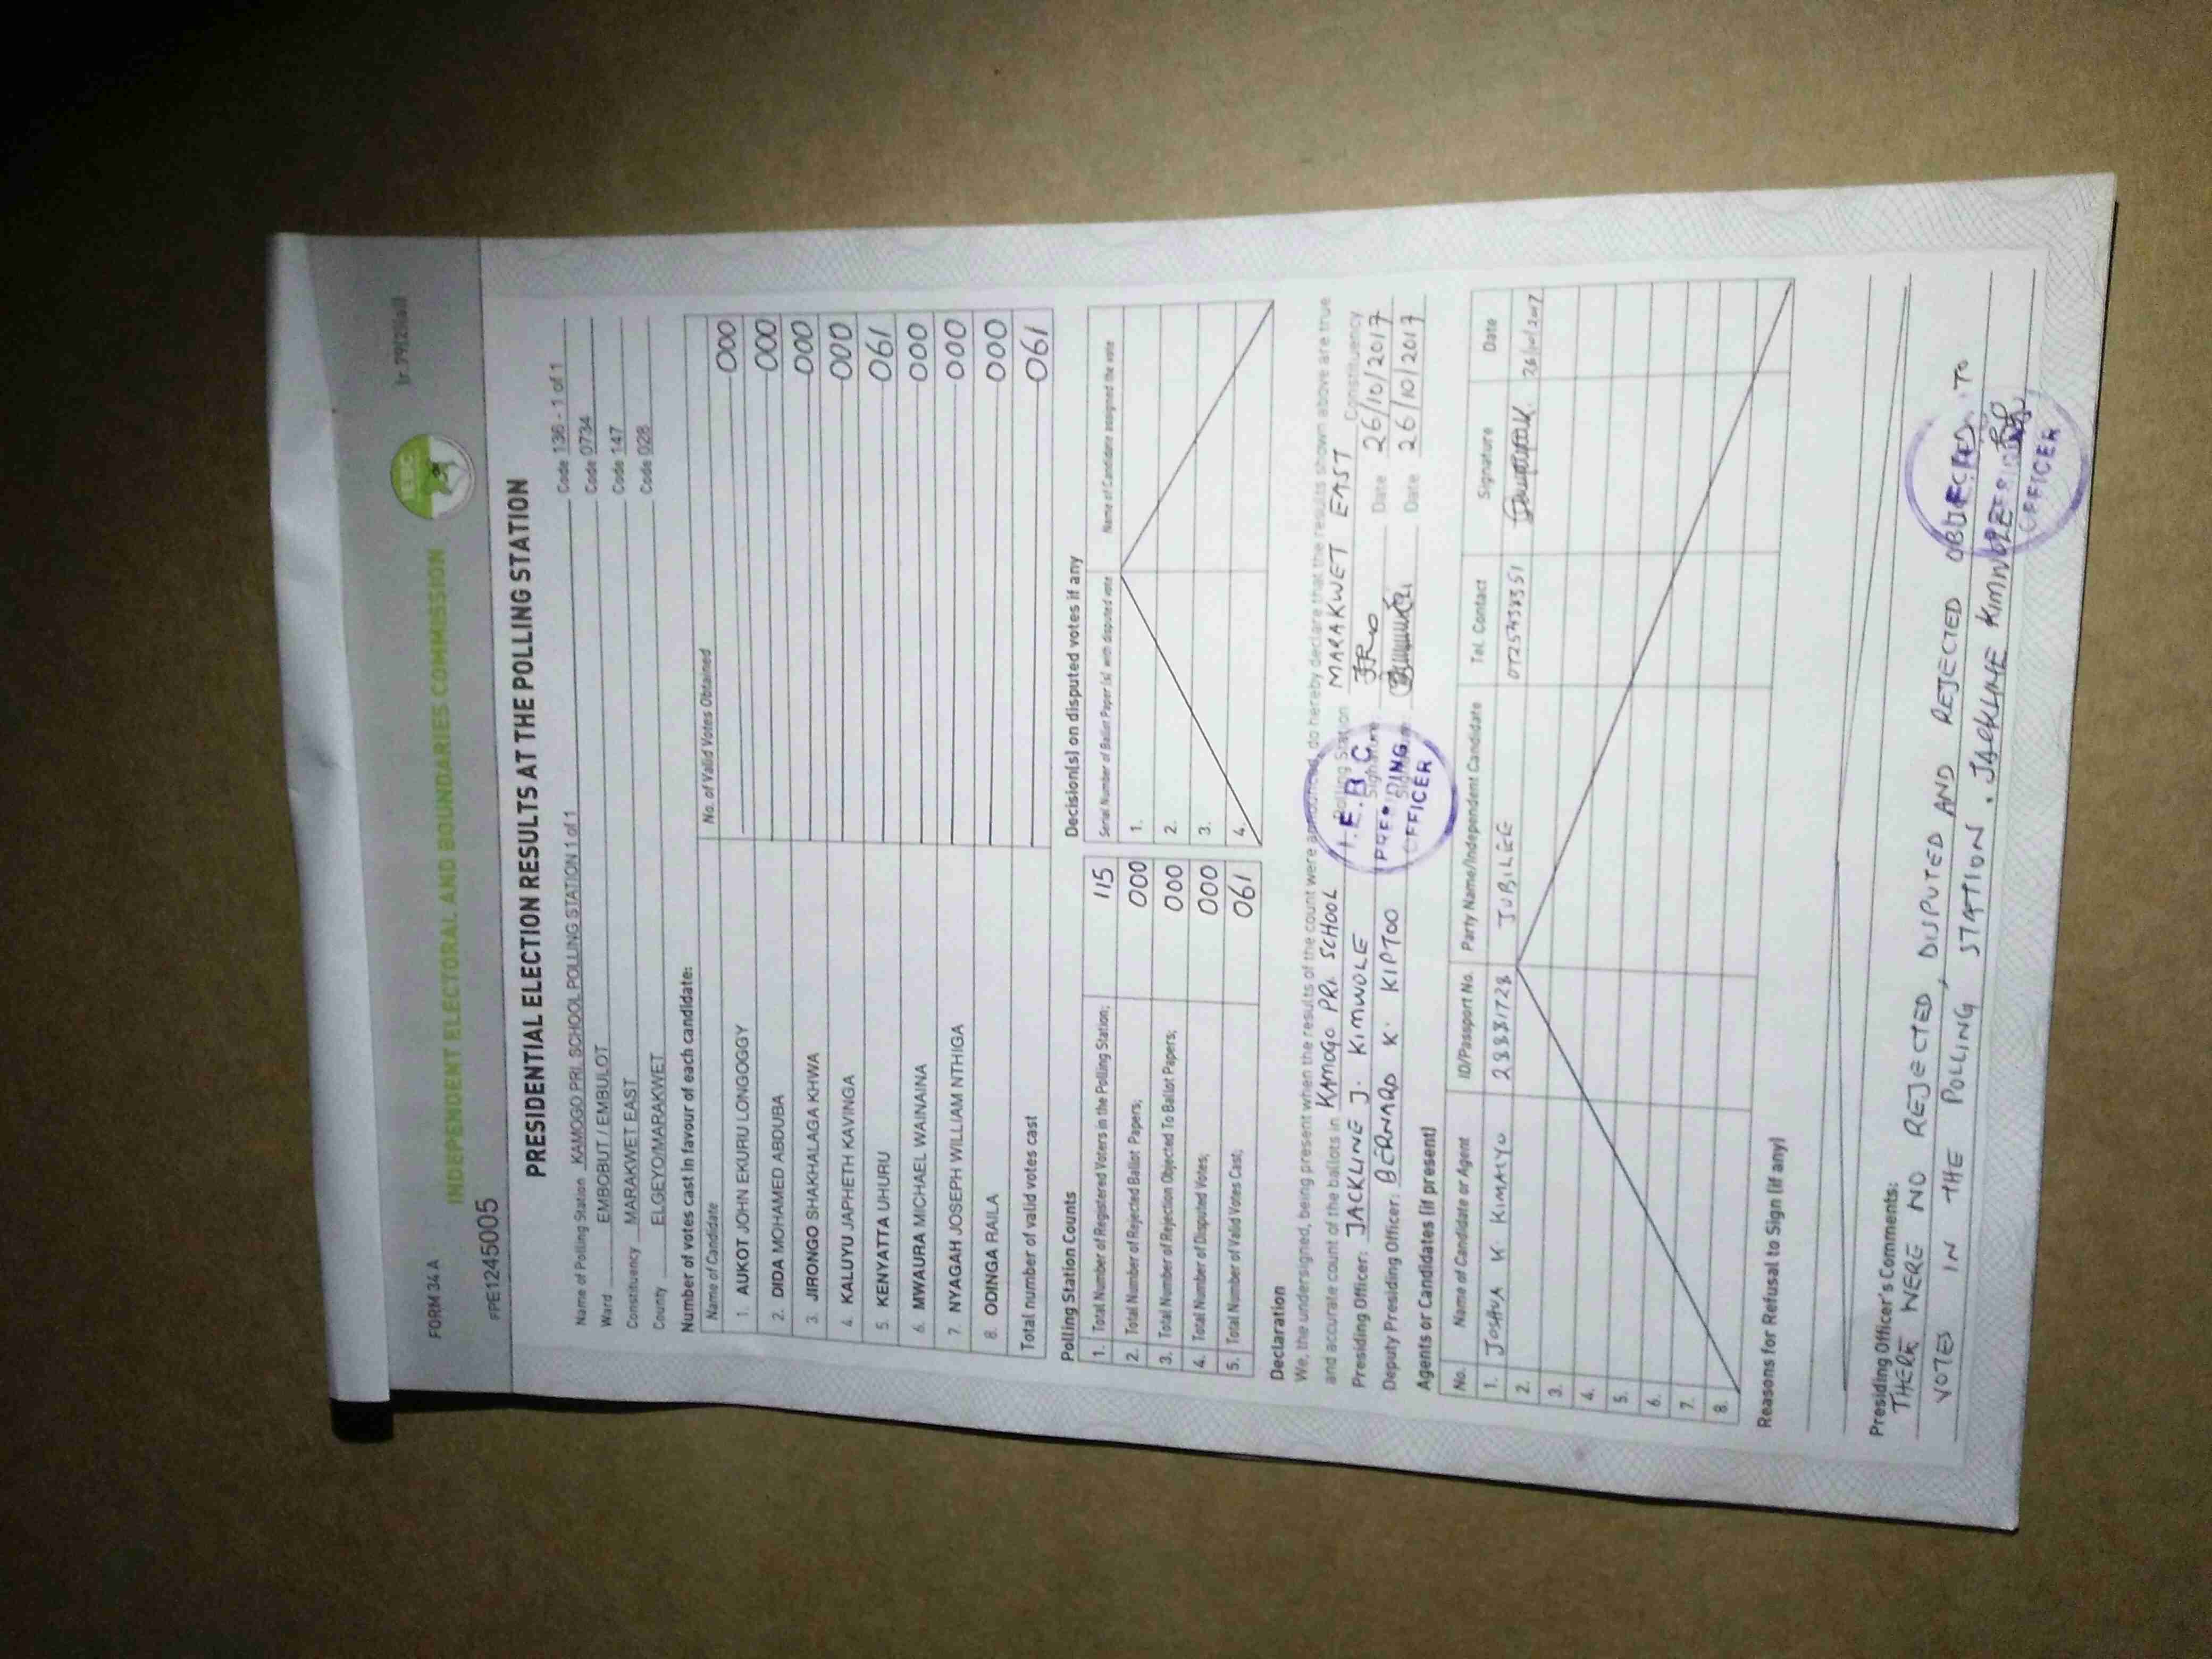 FORM 34 A
INDEPENDENT ELECTORAL AND BOUNDARIES COMMISSION
IEBC
FPE1245005
PRESIDENTIAL ELECTION RESULTS AT THE POLLING STATION
Name of Polling Station KAMOGO PRI. SCHOOL POLLING STATION 1 of 1 Code 136 - 1 of 1
Ward EMBOBUT / EMBULOT Code 0734
Constituency MARAKWET EAST Code 147
County ELGEYO/MARAKWET Code 028
Number of votes cast in favour of each candidate:
Name of Candidate No. of Valid Votes Obtained
1. AUKOT JOHN EKURU LONGOGGY 000
2. DIDA MOHAMED ABDUBA 000
3. JIRONGO SHAKHALAGA KHWA 000
4. KALUYU JAPHETH KAVINGA 000
5. KENYATTA UHURU 061
6. MWAURA MICHAEL WAINAINA 000
7. NYAGAH JOSEPH WILLIAM NTHIGA 000
8. ODINGA RAILA 000
Total number of valid votes cast 061
Polling Station Counts
1. Total Number of Registered Voters in the Polling Station; 115
2. Total Number of Rejected Ballot Papers; 000
3. Total Number of Rejection Objected To Ballot Papers; 000
4. Total Number of Disputed Votes; 000
5. Total Number of Valid Votes Cast; 061
Decision(s) on disputed votes if any
Serial Number of Ballot Paper (s) with disputed vote Name of Candidate assigned the vote
1.
2.
3.
4.
Declaration
We, the undersigned, being present when the results of the count were announced, do hereby declare that the results shown above are true
and accurate count of the ballots in KAMOGO PRI SCHOOL Polling Station MARAKWET EAST Constituency
Presiding Officer: JACKLINE J. KIMWOLE Signature: Date 26/10/2017
Deputy Presiding Officer: BERNARD K. KIPTOO Signature: Date 26/10/2017
I.E.B.C
PRESIDING
OFFICER
Agents or Candidates (if present)
No. Name of Candidate or Agent ID/Passport No. Party Name/Independent Candidate Tel. Contact Signature Date
1. JOSHUA K KIMAIYO 28881728 JUBILEE 26/10/2017
2.
3.
4.
5.
6.
7.
8.
Reasons for Refusal to Sign (if any)
Presiding Officer's Comments:
THERE WERE NO REJECTED, DISPUTED AND REJECTED OBJECTED TO
VOTES IN THE POLLING STATION. JACKLINE KIMWOLE
OFFICER